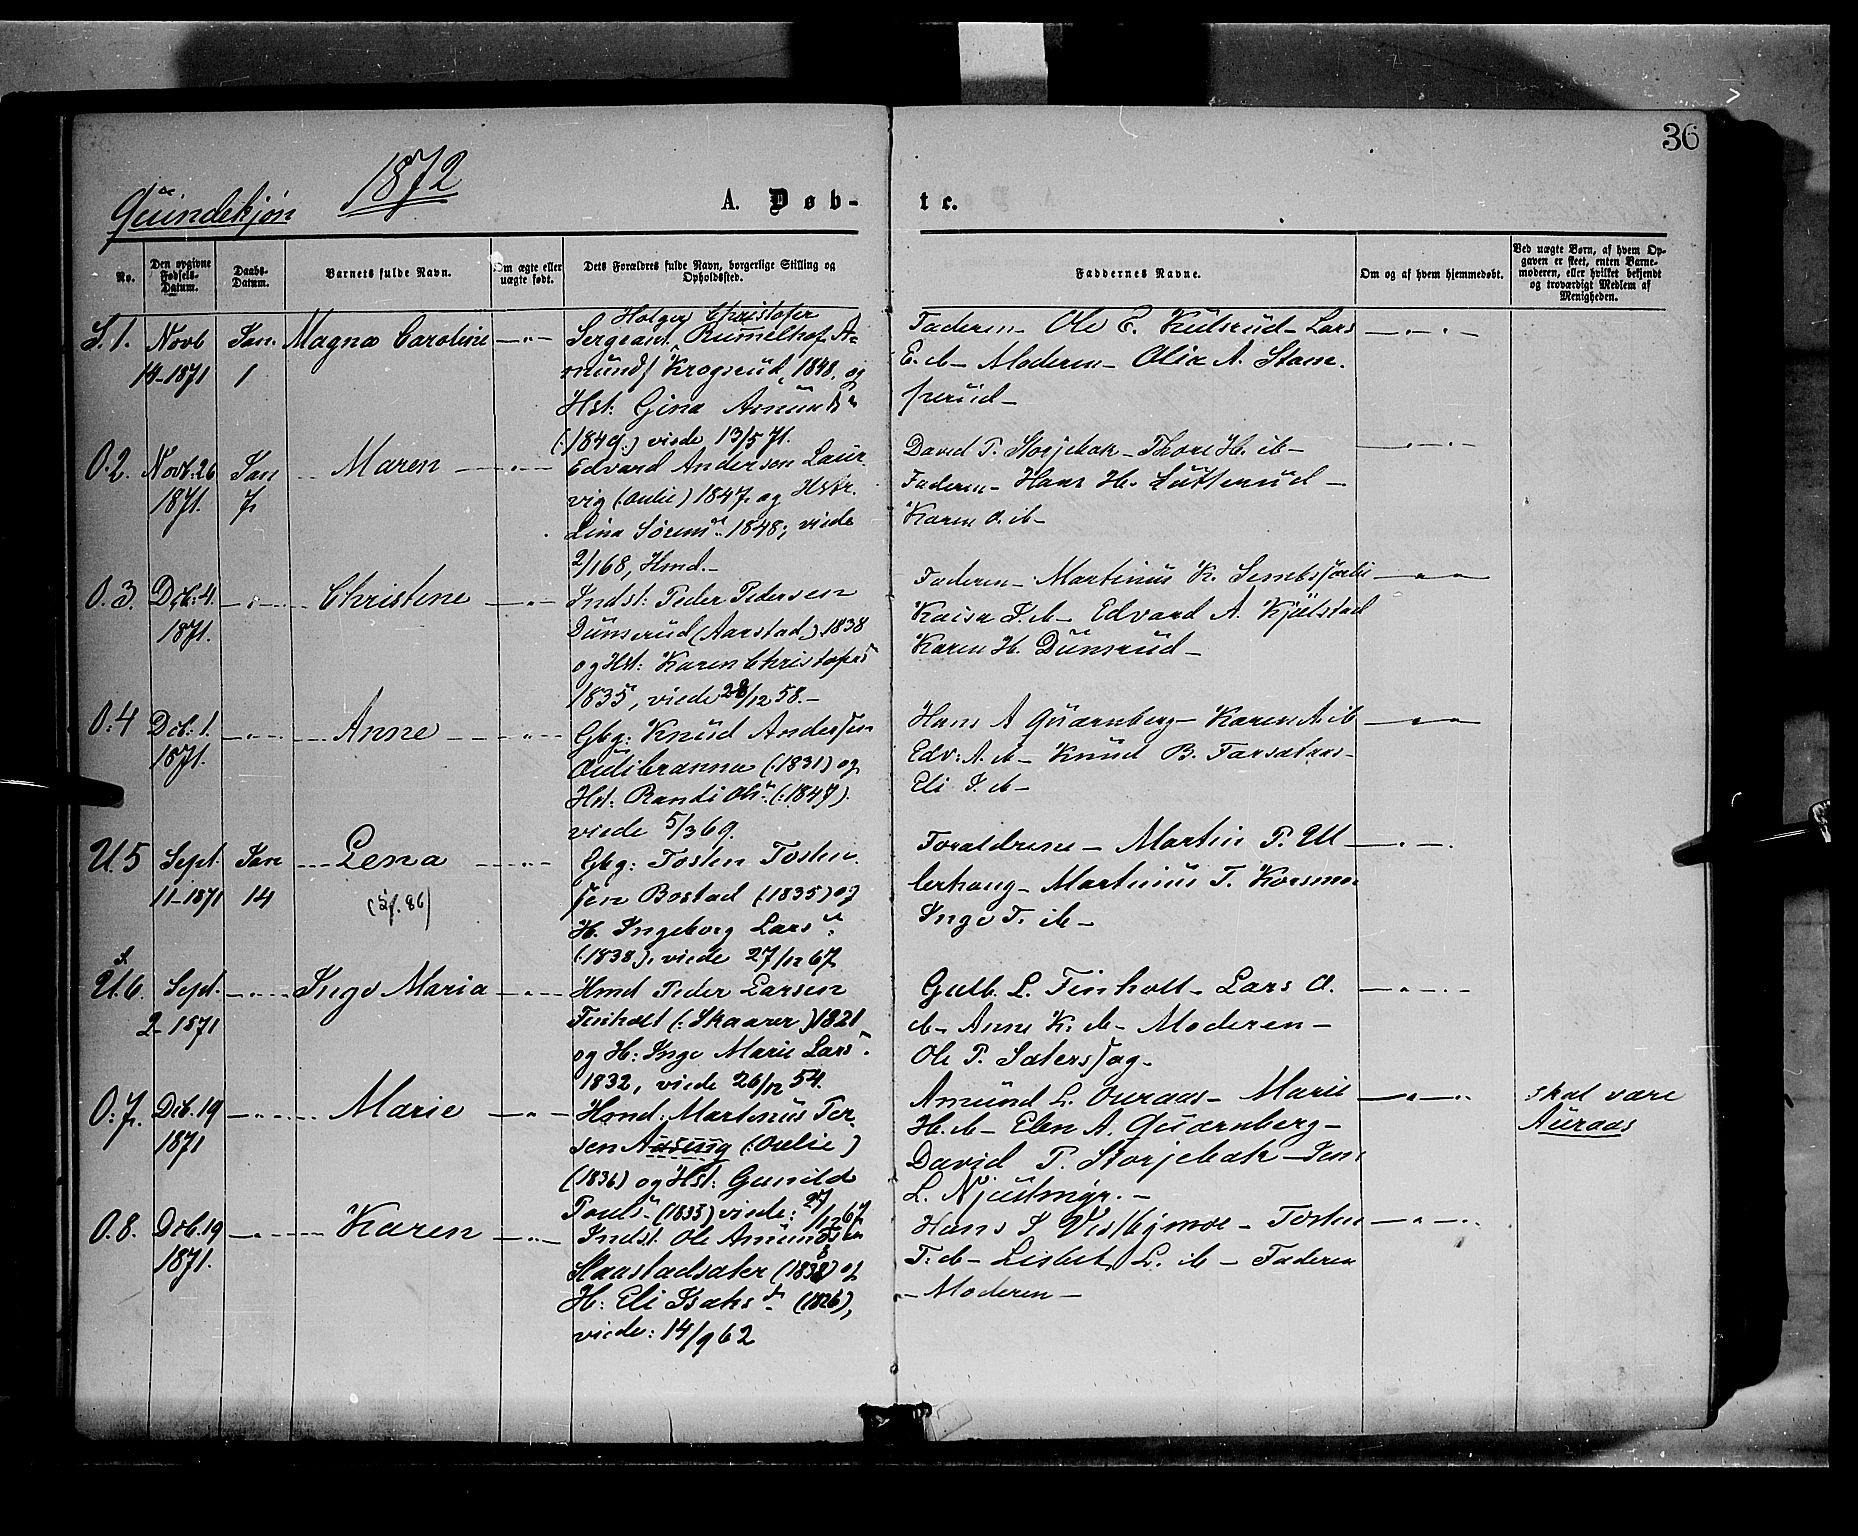 36
1872
Qvindekjøn
A. Døb-
te.
No.
Den opgivne Fødsels-Datum.
Daabs-Datum.
Barnets fulde Navn.
Om ægte eller uægte født.
Dets Forældres fulde Navn, borgerlige Stilling og Opholdssted.
Faddernes Navne.
Om og af hvem hjemmedøbt.
Ved uægte Børn, af hvem Opgaven er skeet, enten Barnemoderen, eller hvilket bekjendt og troværdigt Medlem af Menigheden.
S. 1. Novb 14-1871 Jan. 1 Magna Caroline
Holger Christofer
Sergeant Rumelhof A-
mundss Krogsrud, 1848, og
Hst: Gina Asmunds
(:1849:) viede 13/5 71.
Faderen - Ole E. Kulsrud - Lars
E. ib - Moderen - Olia A. Stam-
psrud -
O. 2. Novb. 26 1871. Jan 7. Maren
Edvard Andersen Laur-
vig (Oulie) 1847. og Hstr.
Lina Sørens 1848; viede
2/1 68, Hmd. -
David P. Storjebak - Thore H. ib -
Faderen - Hans H. Lutterud -
Karen O. ib -
O. 3. Dcb: 4. 1871. Christine
Indst: Peder Pedersen
Dunserud (Aarstad) 1838
og Hst: Karen Christofers
1835, viede 28/12 58. -
Faderen - Martinus K.
Kaisa S. ib - Edvard A. Kjølstad
Karen H. Dunsrud -
O: 4 Dcb: 1. 1871. Anne
Gbg: Knud Andersen
Oudibranna (:1831) og
Hst: Randi Ols. (:1847).
viede 5/3 69.
Hans A Qvarnberg - Karen A. ib
Edv: A. ib - Knud B.
Eli S. ib -
U. 5 Sept. 11-1871 Jan 14 Lena
Gbg: Tosten Tosten-
sen Bostad (1835) og
H. Ingeborg Lars
(:1838), viede 27/12 67
Forældrene - Martin P. Ul-
lerhaug - Martinus T. Korsmo
Inge T. ib -
U. 6. Sept. 2-1871 Inge Maria
Hmd Peder Larsen
Finholt (:Skaarer) 1821
og H: Inge Marie Lars
1832, viede 26/12 54.
Gulb. L. Finholt - Lars O.
ib - Anne K. ib - Moderen -
Ole P. Satersag.
O. 7. Dcb. 19 1871 Marie
Hmd: Martinus Per-
sen (:Oulie)
(1836) og Hst: Gunild
Pouls (1835) viede: 27/12 67
Amund L. Ouraas - Marie
H. ib - Elen A. Qvarnberg -
David P. Storjebak -
L. Njustmyr. -
skal være
Auraas
O. 8. Dcb. 19 1871. Karen
Indst: Ole Amundsen
Haastadsater (1838) og
H: Eli Isaks (1826),
viede: 14/9 62
Hans S Vestbymoe - Tosten
T. ib - Lisbet L. ib - Faderen
- Moderen -